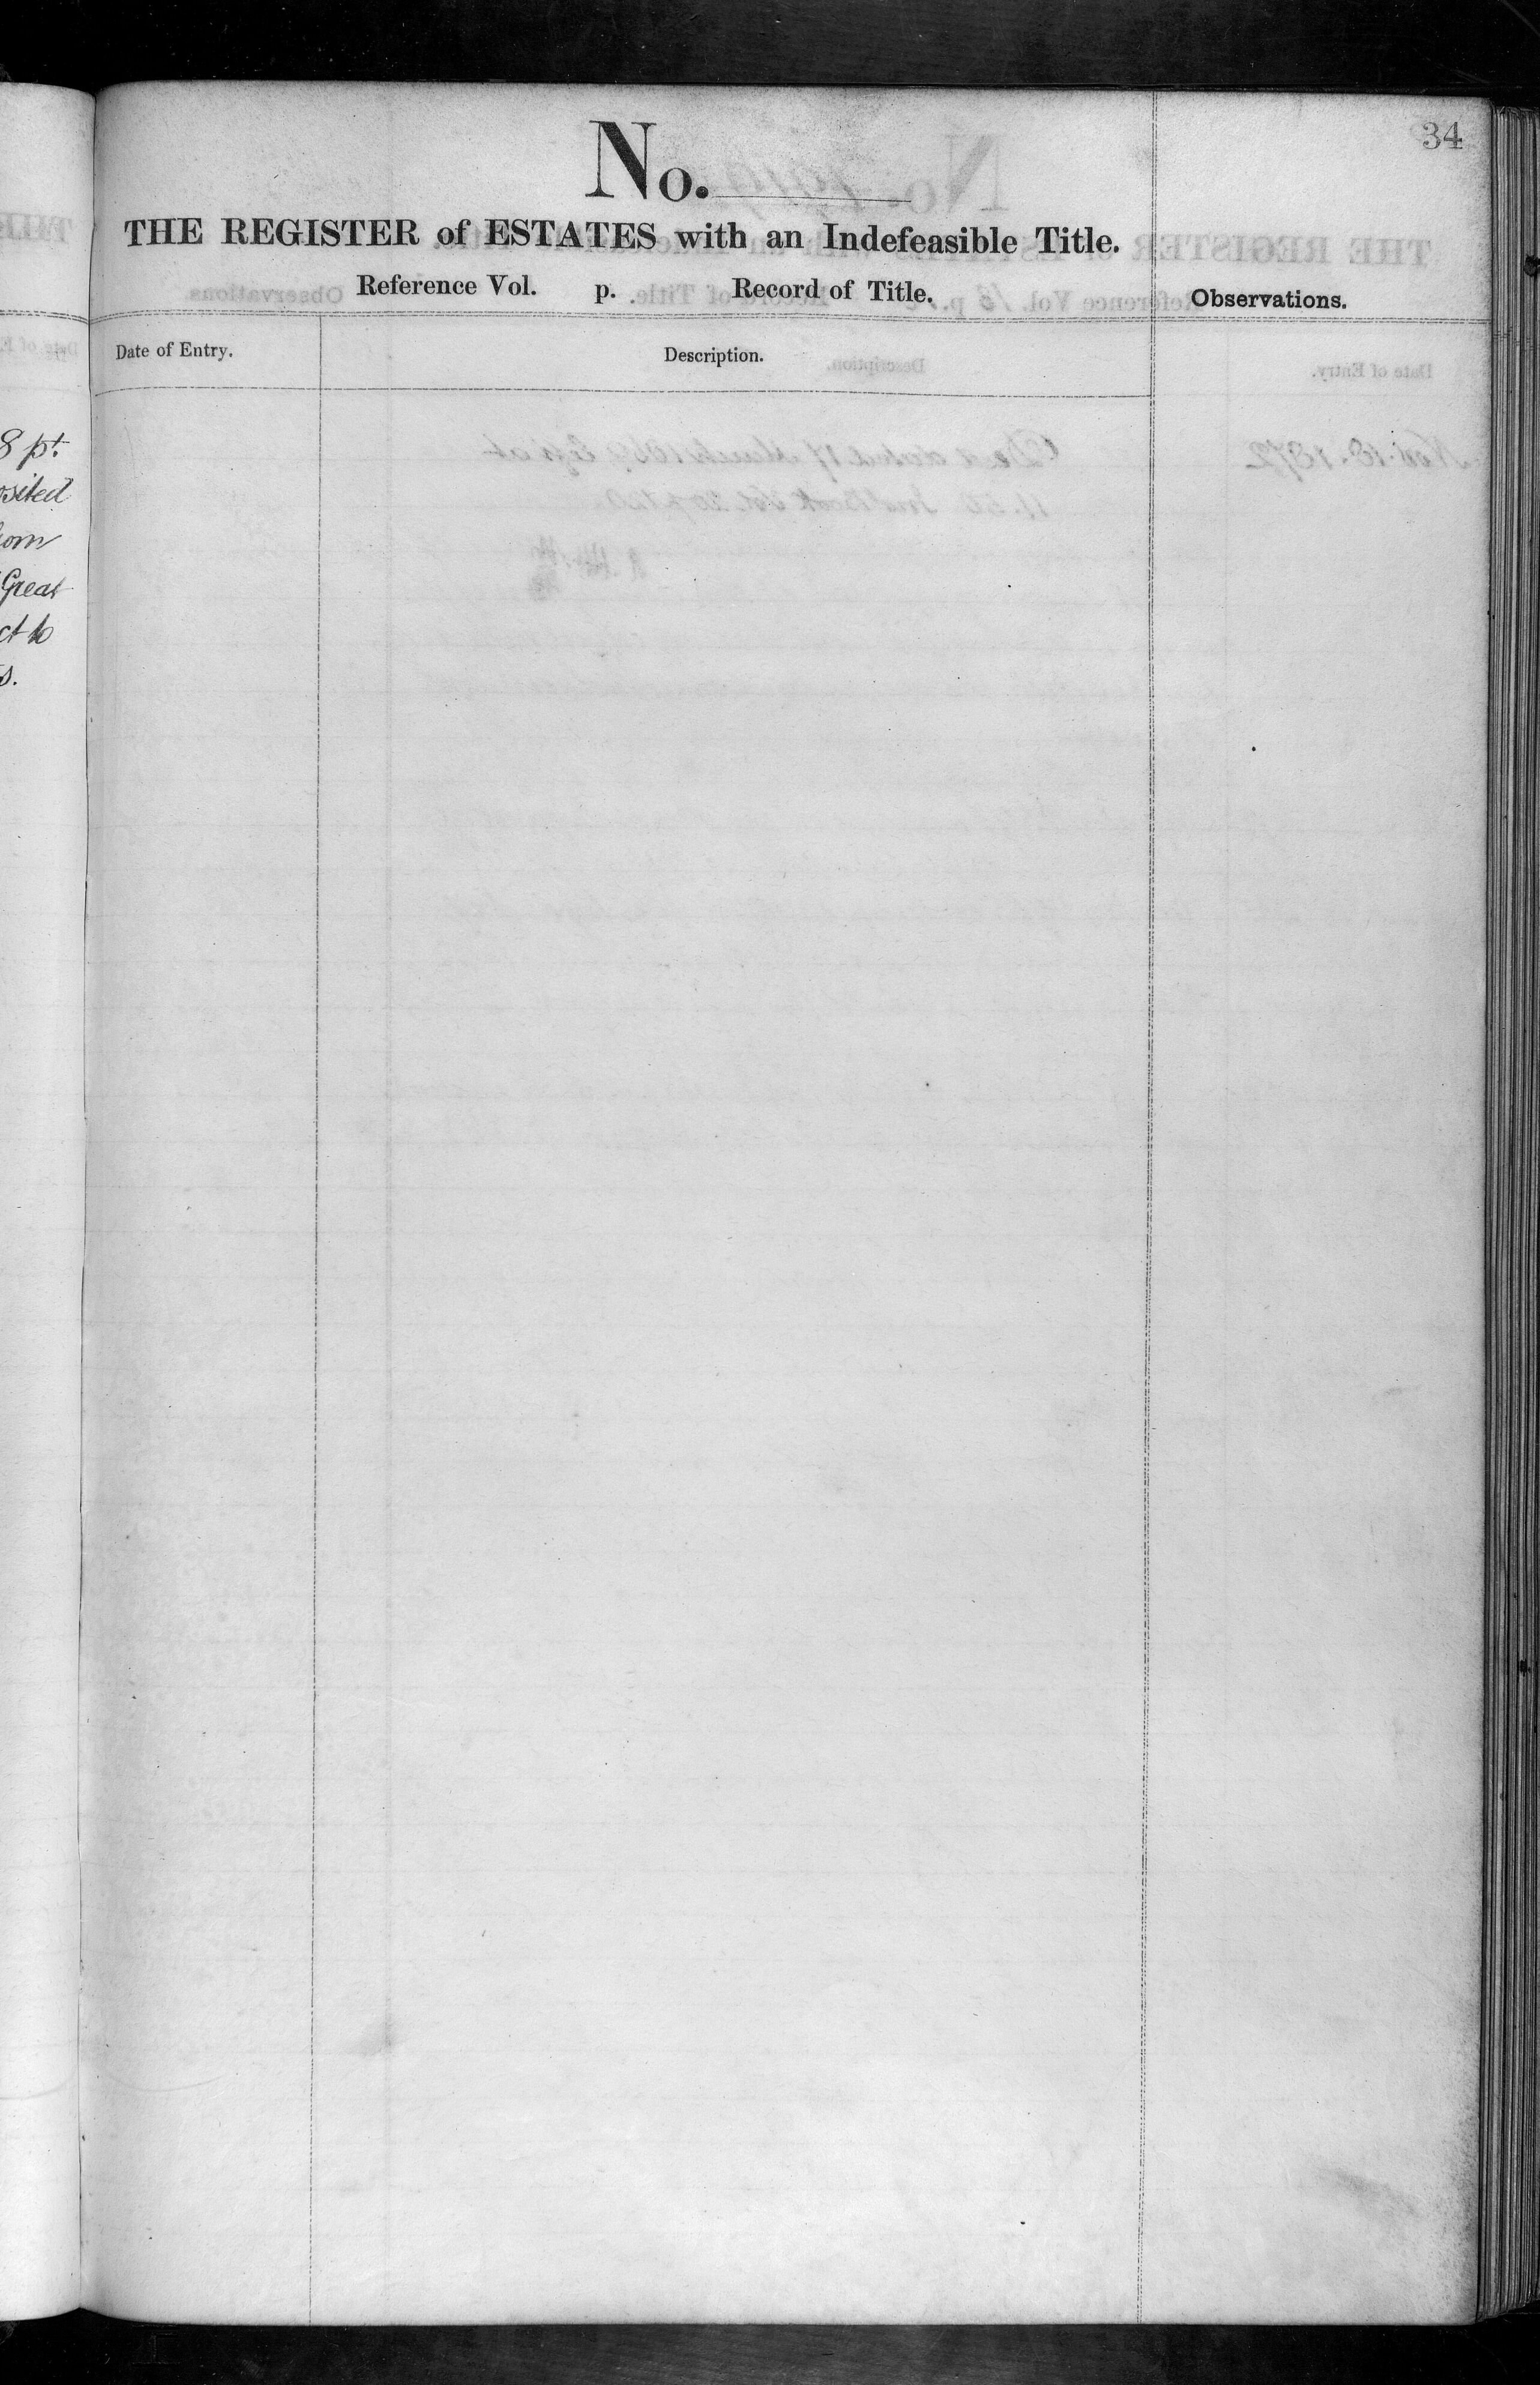 34
No.
THE REGISTER of ESTATES with an Indefeasible Title.
Reference Vol. p. Record of Title.
Observations.
Date of Entry.
Description.
8 pt.
osited
Great
ct to
s.